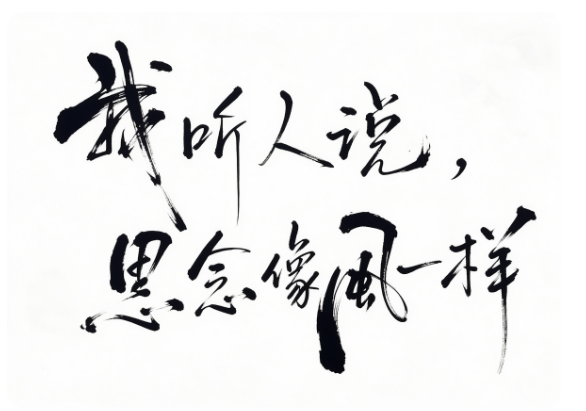 我听人说，
思念像风一样